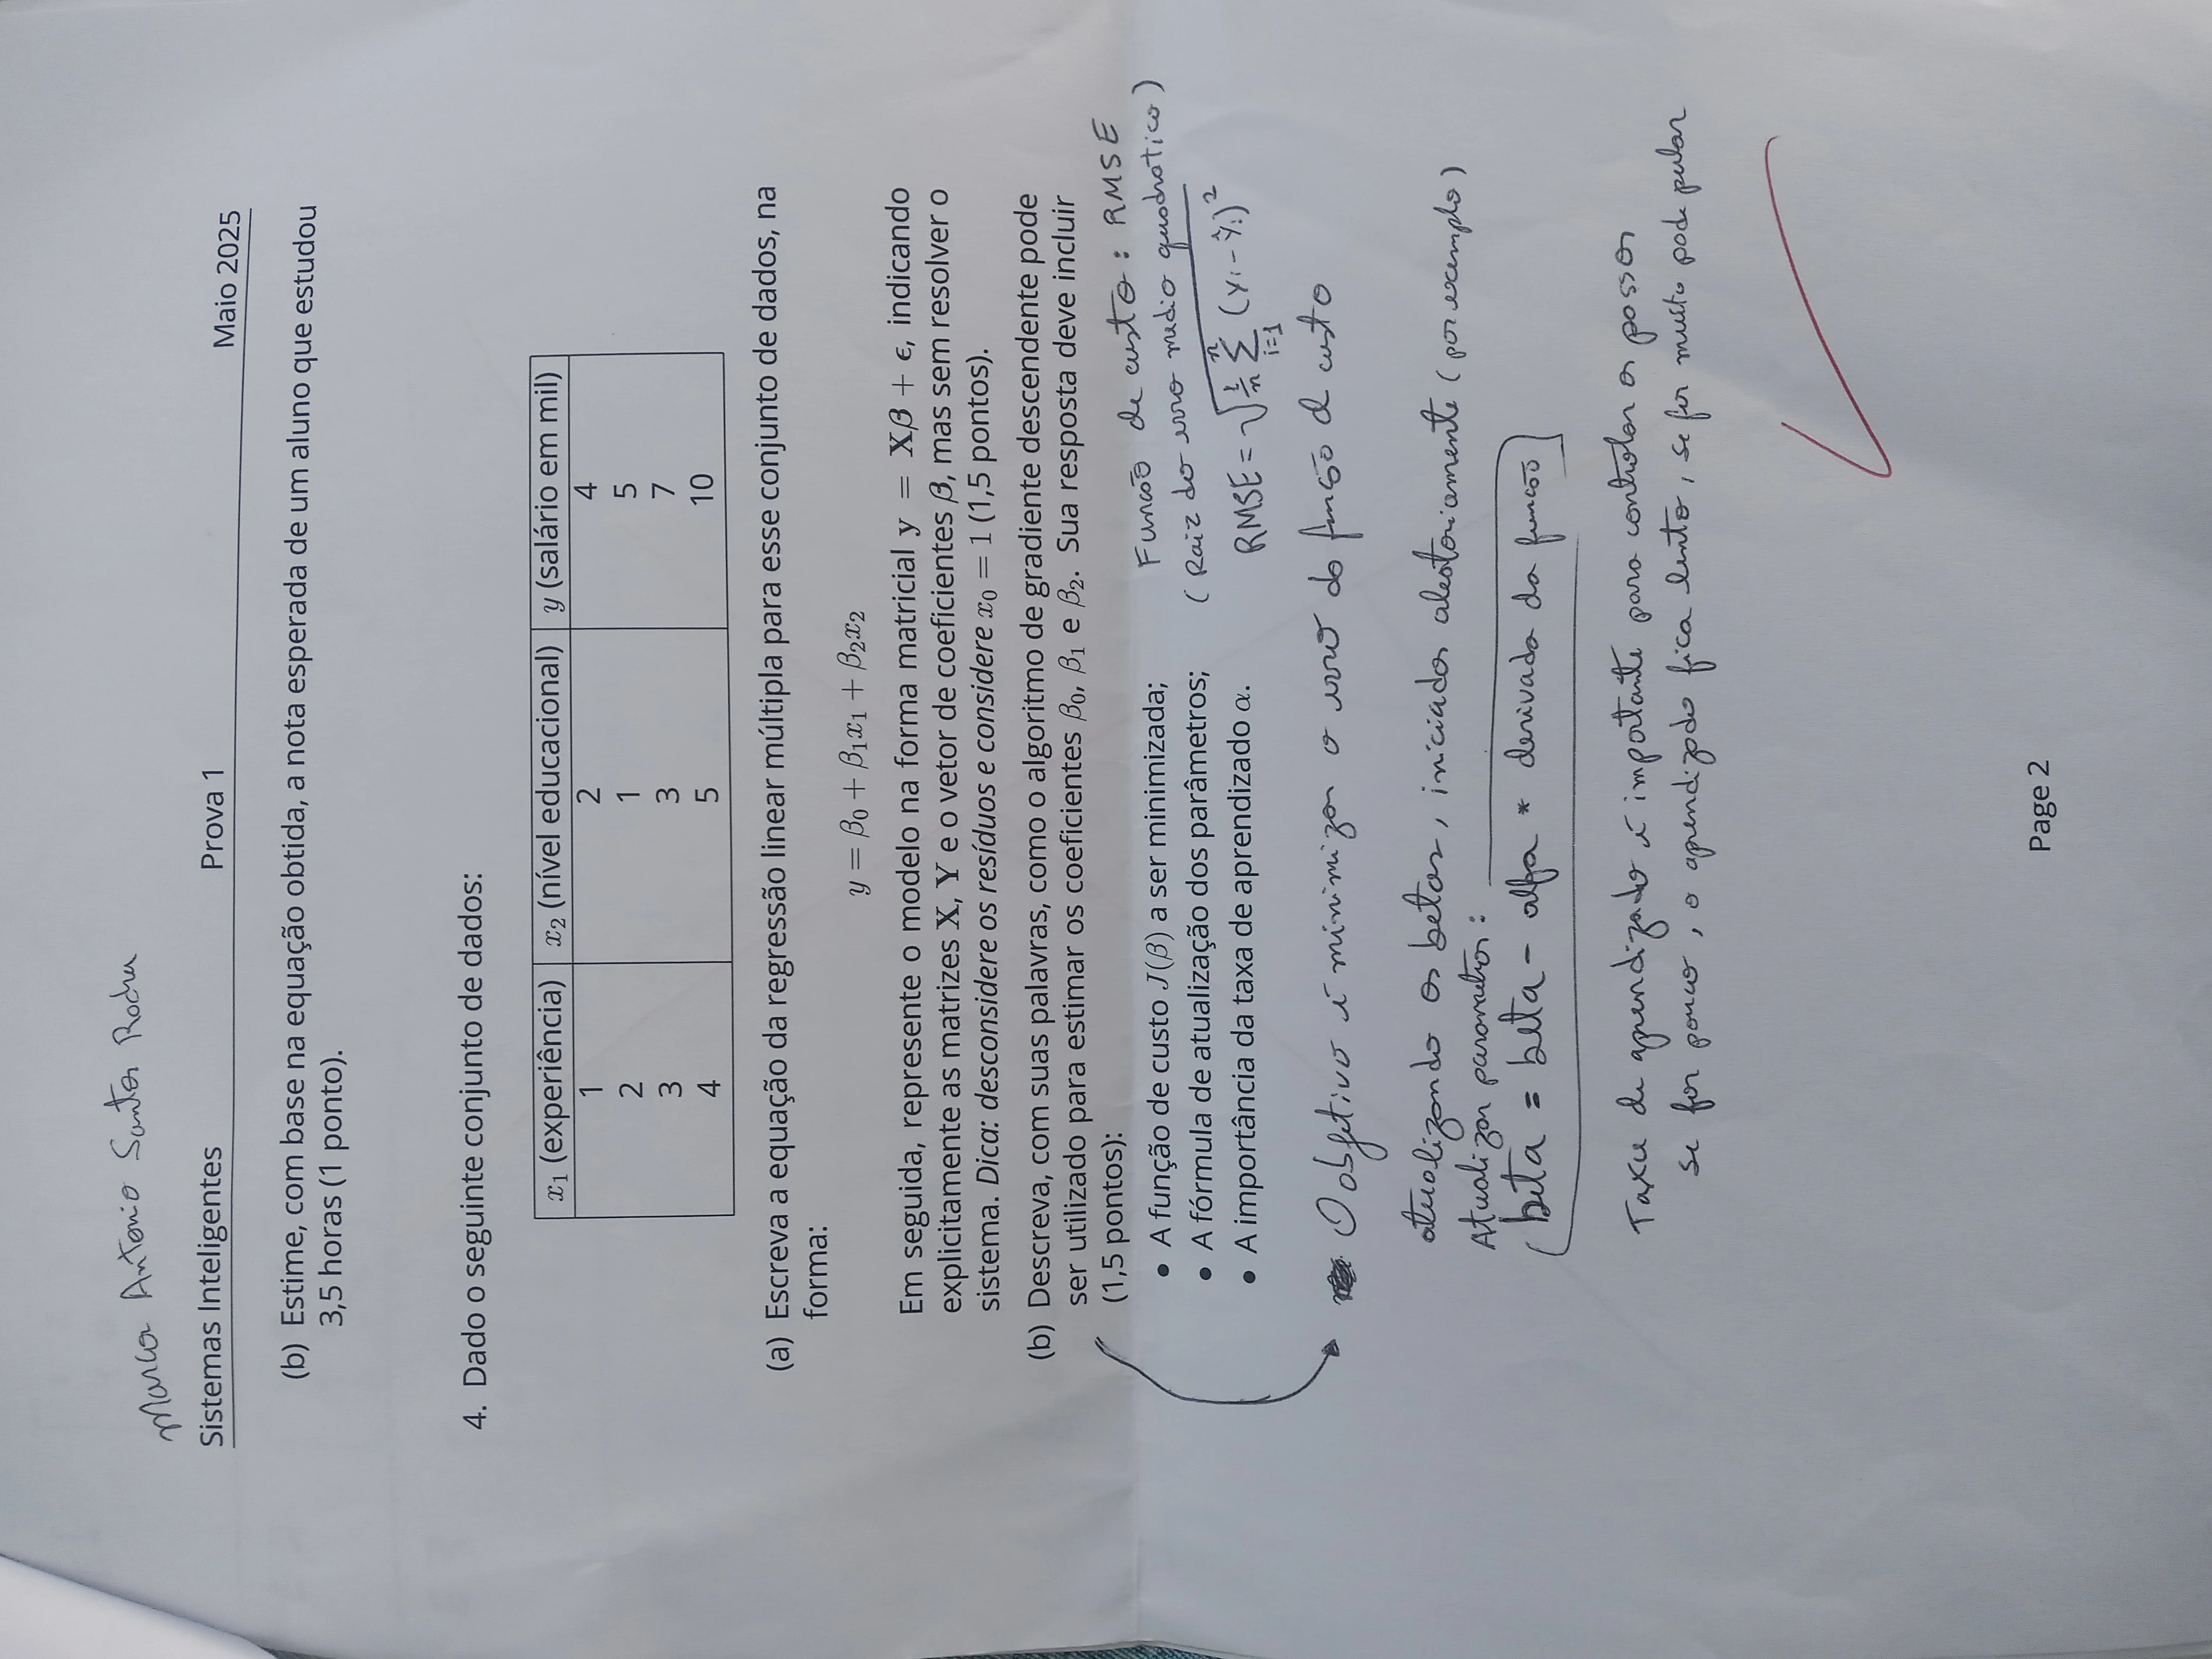 Marco Antonio Santos
Sistemas Inteligentes Prova 1 Maio 2025
(b) Estime, com base na equação obtida, a nota esperada de um aluno que estudou
3,5 horas (1 ponto).
4. Dado o seguinte conjunto de dados:
x₁ (experiência) x₂ (nível educacional) y (salário em mil)
1 2 4
2 1 5
3 3 7
4 5 10
(a) Escreva a equação da regressão linear múltipla para esse conjunto de dados, na
forma:
y = β₀ + β₁x₁ + β₂x₂
Em seguida, represente o modelo na forma matricial y = Xβ + ϵ, indicando
explicitamente as matrizes X, Y e o vetor de coeficientes β, mas sem resolver o
sistema. Dica: desconsidere os resíduos e considere x₀ = 1 (1,5 pontos).
(b) Descreva, com suas palavras, como o algoritmo de gradiente descendente pode
ser utilizado para estimar os coeficientes β₀, β₁ e β₂. Sua resposta deve incluir
(1,5 pontos):
• A função de custo J(β) a ser minimizada;
• A fórmula de atualização dos parâmetros;
• A importância da taxa de aprendizado α.
Função de custo: RMSE
(Raiz do erro medio quadratico)
RMSE = √(1/n Σ i=1 n (yi - ŷi)²)
O objetivo é minimizar o erro da função d custo
atualizando os betas, iniciados aleatoriamente (por exemplo)
Atualizar parametros:
beta = beta - alfa * derivada da função
Taxa de aprendizado é importante para controlar os passos
se for pouco, o aprendizado fica lento, se for muito pode pular
Page 2